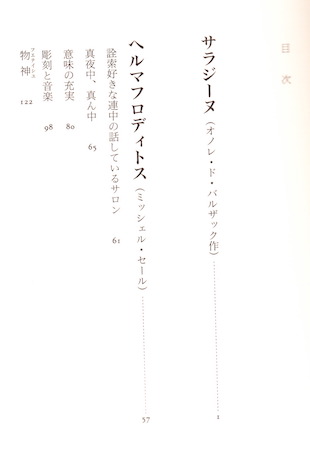 目次
サラジーヌ（オノレ・ド・バルザック作）……1
ヘルマフロディトス（ミッシェル・セール）……57
詮索好きな連中の話しているサロン 61
真夜中、真ん中 65
意味の充実 80
彫刻と音楽 98
物神 フェティシュ 122